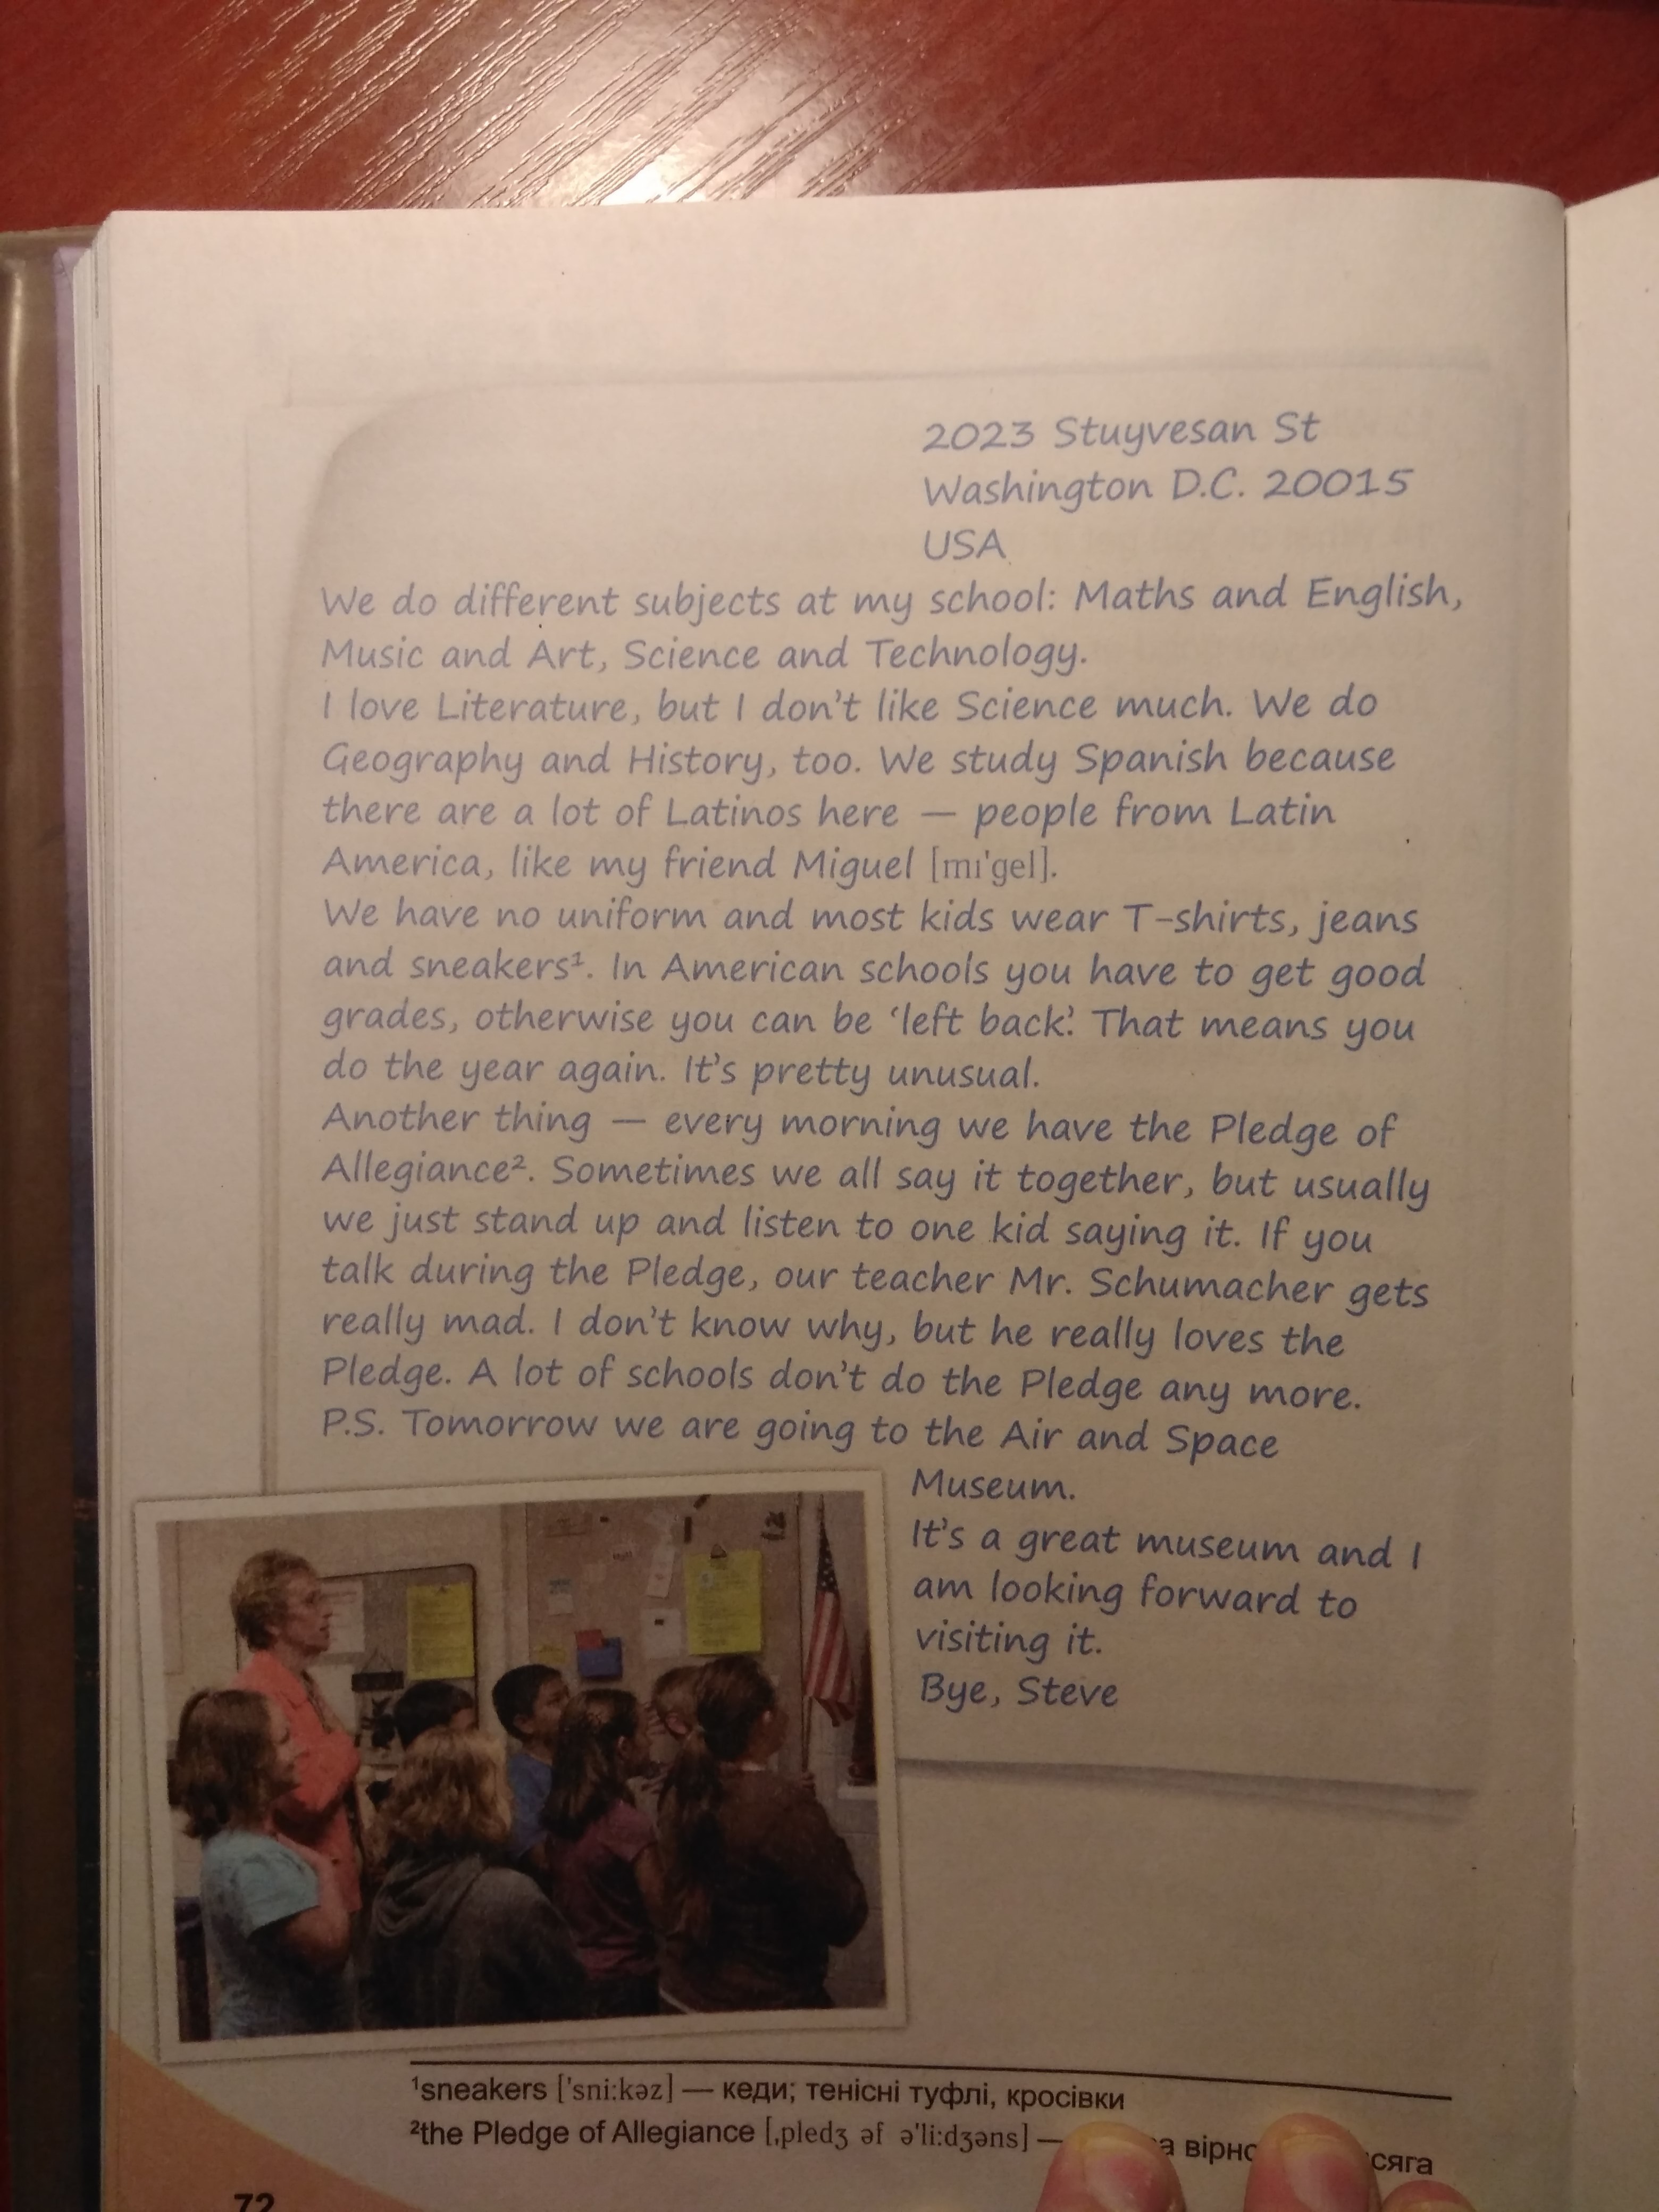 2023 Stuyvesan St
Washington D.C. 20015
USA
We do different subjects at my school: Maths and English,
Music and Art, Science and Technology.
I love Literature, but I don't like Science much. We do
Geography and History, too. We study Spanish because
there are a lot of Latinos here — people from Latin
America, like my friend Miguel [mı'gel].
We have no uniform and most kids wear T-shirts, jeans
and sneakers¹. In American schools you have to get good
grades, otherwise you can be ‘left back’. That means you
do the year again. It's pretty unusual.
Another thing — every morning we have the Pledge of
Allegiance². Sometimes we all say it together, but usually
we just stand up and listen to one kid saying it. If you
talk during the Pledge, our teacher Mr. Schumacher gets
really mad. I don't know why, but he really loves the
Pledge. A lot of schools don't do the Pledge any more.
P.S. Tomorrow we are going to the Air and Space
Museum.
It's a great museum and I
am looking forward to
visiting it.
Bye, Steve
¹sneakers ['sni:kəz] — кеди; тенісні туфлі, кросівки
²the Pledge of Allegiance [ˌpledʒ əf ə'li:dʒəns] —
72